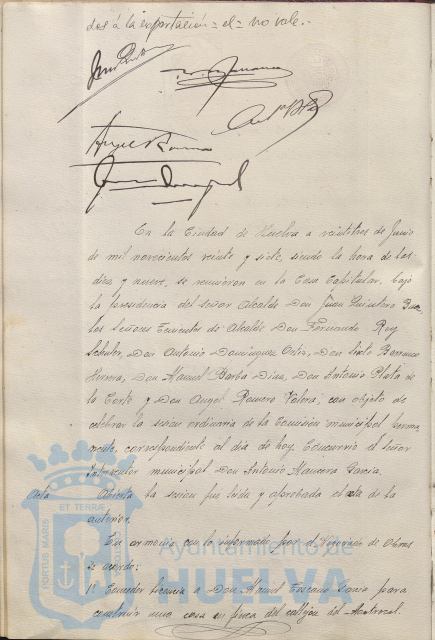 dos á la exportación = el = no vale.-
En la Ciudad de Huelva a veintitres de Junio
de mil novecientos veinte y siete, siendo la hora de las
diez y nueve, se reunieron en la Casa Capitular, bajo
la presidencia del Señor Alcalde Don Juan Quintero
los Señores Tenientes de Alcalde Don Fernando Rey
Don Antonio Dominguez Ortiz, Don Sixto Barranco
Herrera, Don Manuel Barba Diaz, Don Antonio Plata de
la Corte y Don Angel Romero Valera; con objeto de
celebrar la sesion ordinaria de la Comision municipal Perma
nente, correspondiente al dia de hoy. Concurrió el Señor
Interventor municipal Don Antonio Mancera Garcia.
Acta
Abierta la sesion fue leida y aprobada el acta de la
anterior.
En armonia con lo informado por el Negociado de Obras
se acordó:
1º Conceder licencia a Don Manuel Toscano Garcia para
construir una casa en finca del callejon del
ET TERRÆ
PORTUS MARIS
Ayuntamiento de
HUELVA